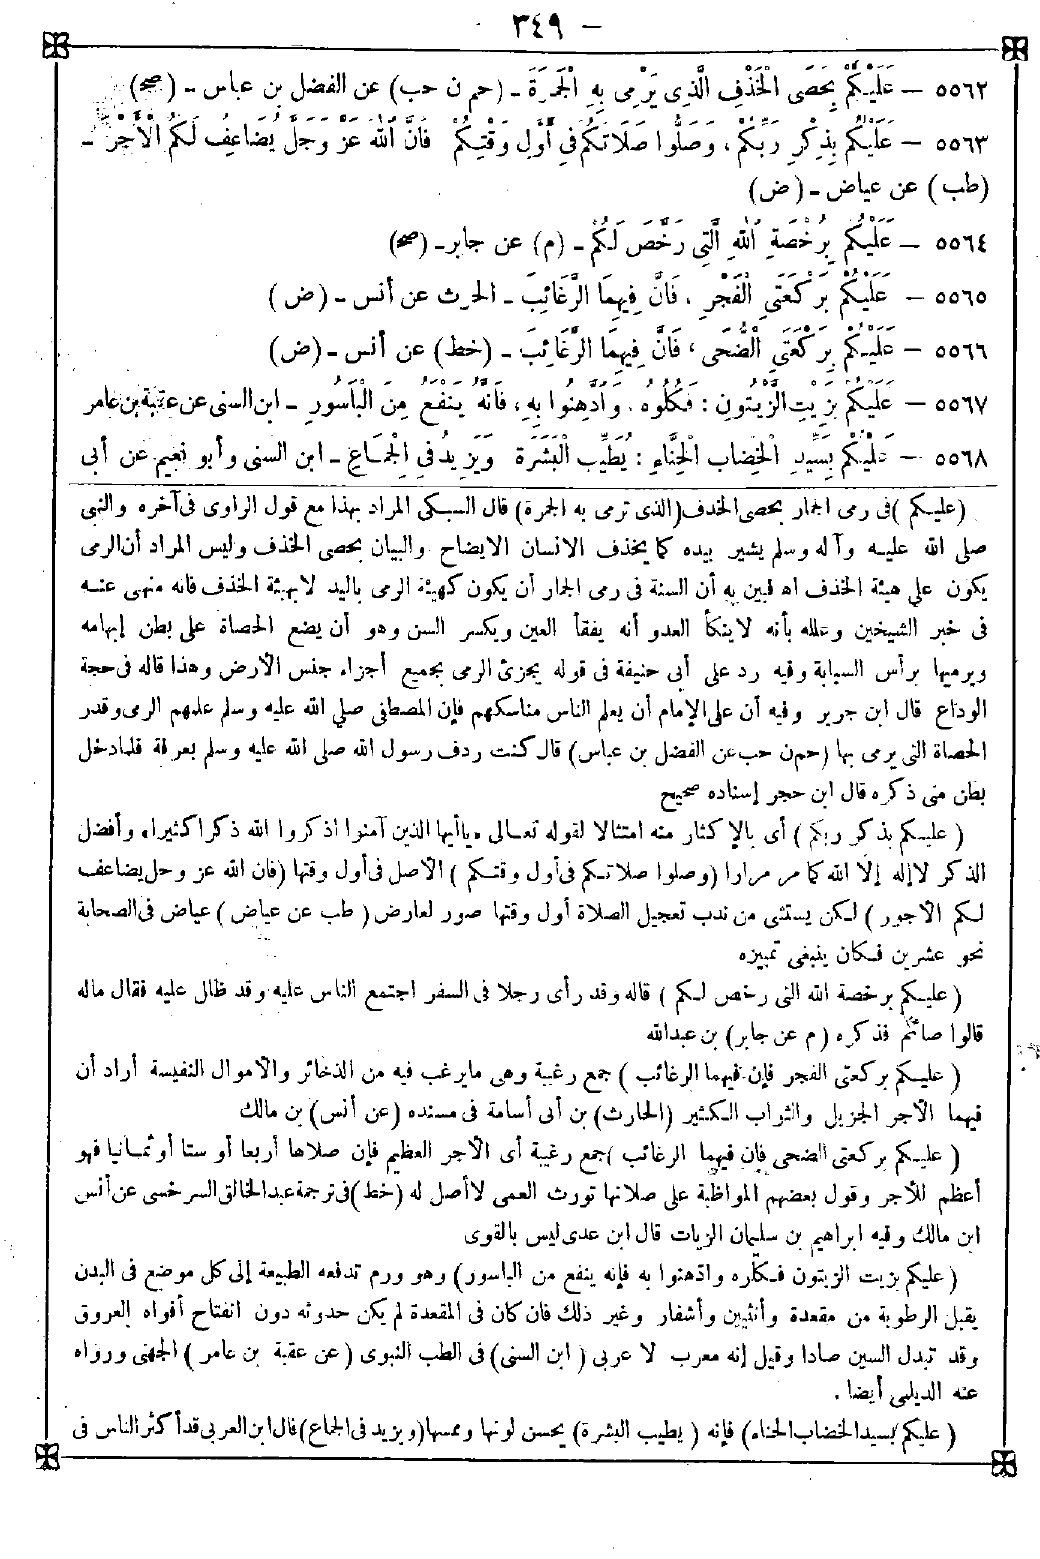 – ٣٤٩
٥٥٦٢ – عَلَيْكُمْ بِحَصَى الْخَذْفِ الَّذِى يَرْمِى بِهِ الْجَمَرَةَ - (حم ن حب) عن الفضل بن عباس - (صح)
٥٥٦٣ – عَلَيْكُمْ بِذِكْرِ رَبِّكُمْ، وَصَلُّوا صَلَاتَكُمْ فِى أَوَّلِ وَقْتِكُمْ فَانَّ ٱللّٰهَ عَزَّ وَجَلَّ يُضَاعِفُ لَكُمُ الْأَجْرَ -
(طب) عن عياض - (ض)
٥٥٦٤ – عَلَيْكُمْ بِرُخْصَةِ ٱللّٰهِ الَّتِى رَخَّصَ لَكُمْ - (م) عن جابر - (صح)
٥٥٦٥ – عَلَيْكُمْ بِرَكْعَتَىِ الْفَجْرِ، فَانَّ فِيهِمَا الرَّغَائِبَ - الحرث عن أنس - (ض)
٥٥٦٦ – عَلَيْكُمْ بِرَكْعَتَىِ الضُّحَى، فَانَّ فِيهِمَا الرَّغَائِبَ - (خط) عن أنس - (ض)
٥٥٦٧ – عَلَيْكُمْ بِزَيْتِ الزَّيْتُونِ: فَكُلُوهُ، وَٱدَّهِنُوا بِهِ، فَانَّهُ يَنْفَعُ مِنَ الْبَاسُورِ - ابن السنى عن عقبة بن عامر
٥٥٦٨ – عَلَيْكُمْ بِسَيِّدِ الْخِضَابِ الْحِنَّاءِ: يُطَيِّبُ الْبَشَرَةَ وَيَزِيدُ فِى الْجِمَاعِ - ابن السنى وأبو نعيم عن أبى
(عليكم) فى رمى الجمار بحصى الخذف (الذى ترمى به الجمرة) قال السبكى المراد بهذا مع قول الراوى فى آخره والنبى
صلى الله عليه وآله وسلم يشير بيده كما يخذف الانسان الايضاح والبيان بحصى الخذف وليس المراد أن الرمى
يكون على هيئة الخذف اه فبين به أن السنة فى رمى الجمار أن يكون كهيئة الرمى باليد لا بهيئة الخذف فانه منهى عنه
فى خبر الشيخين وعلله بأنه لا ينكأ العدو أنه يفقأ العين ويكسر السن وهو أن يضع الحصاة على بطن إبهامه
ويرميها برأس السبابة وفيه رد على أبى حنيفة فى قوله يجزئ الرمى بجميع أجزاء جنس الأرض وهذا قاله فى حجة
الوداع قال ابن جرير وفيه أن على الإمام أن يعلم الناس مناسكهم فإن المصطفى صلى الله عليه وسلم علمهم الرمى وقدر
الحصاة التى يرمى بها (حم ن حب عن الفضل بن عباس) قال كنت ردف رسول الله صلى الله عليه وسلم بعرفة فلما دخل
بطن منى ذكره قال ابن حجر إسناده صحيح
(عليكم بذكر ربكم) أى بالإكثار منه امتثالا لقوله تعالى «ياأيها الذين آمنوا اذكروا الله ذكرا كثيرا» وأفضل
الذكر لا إله إلا الله كما مر مرارا (وصلوا صلاتكم فى أول وقتكم) الأصل فى أول وقتها (فان الله عز وجل يضاعف
لكم الأجور) لكن يستثنى من ندب تعجيل الصلاة أول وقتها صور لعارض (طب عن عياض) عياض فى الصحابة
نحو عشرين فكان ينبغى تمييزه
(عليكم برخصة الله التى رخص لكم) قاله وقد رأى رجلا فى السفر اجتمع الناس عليه وقد ظلل عليه فقال ماله
قالوا صائم فذكره (م عن جابر) بن عبدالله
(عليكم بركعتى الفجر فإن فيهما الرغائب) جمع رغبة وهى ما يرغب فيه من الذخائر والأموال النفيسة أراد أن
فيهما الأجر الجزيل والثواب الكثير (الحارث) بن أبى أسامة فى مسنده (عن أنس) بن مالك
(عليكم بركعتى الضحى فإن فيهما الرغائب) جمع رغبة أى الأجر العظيم فإن صلاها أربعا أو ستا أو ثمانيا فهو
أعظم للأجر وقول بعضهم المواظبة على صلاتها تورث العمى لا أصل له (خط) فى ترجمة عبدالخالق السرخسى عن أنس
ابن مالك وفيه ابراهيم بن سليمان الزيات قال ابن عدى ليس بالقوى
(عليكم بزيت الزيتون فكلوه وادهنوا به فإنه ينفع من الباسور) وهو ورم تدفعه الطبيعة إلى كل موضع فى البدن
يقبل الرطوبة من مقعدة وأنثيين وأشفار وغير ذلك فان كان فى المقعدة لم يكن حدوثه دون انفتاح أفواه العروق
وقد تبدل السين صادا وقيل إنه معرب لا عربى (ابن السنى) فى الطب النبوى (عن عقبة بن عامر) الجهنى ورواه
عنه الديلمى أيضا.
(عليكم بسيد الخضاب الحناء) فإنه (يطيب البشرة) يحسن لونها ومسها (ويزيد فى الجماع) قال ابن العربى قد أكثر الناس فى